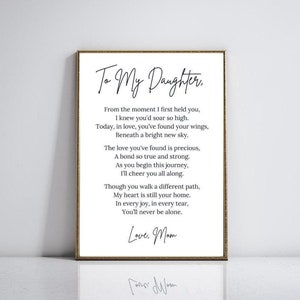 To My Daughter,
From the moment I first held you,
I knew you'd soar so high.
Today, in love, you've found your wings,
Beneath a bright new sky.
The love you've found is precious,
A bond so true and strong.
As you begin this journey,
I'll cheer you all along.
Though you walk a different path,
My heart is still your home.
In every joy, in every tear,
You'll never be alone.
Love, Mom